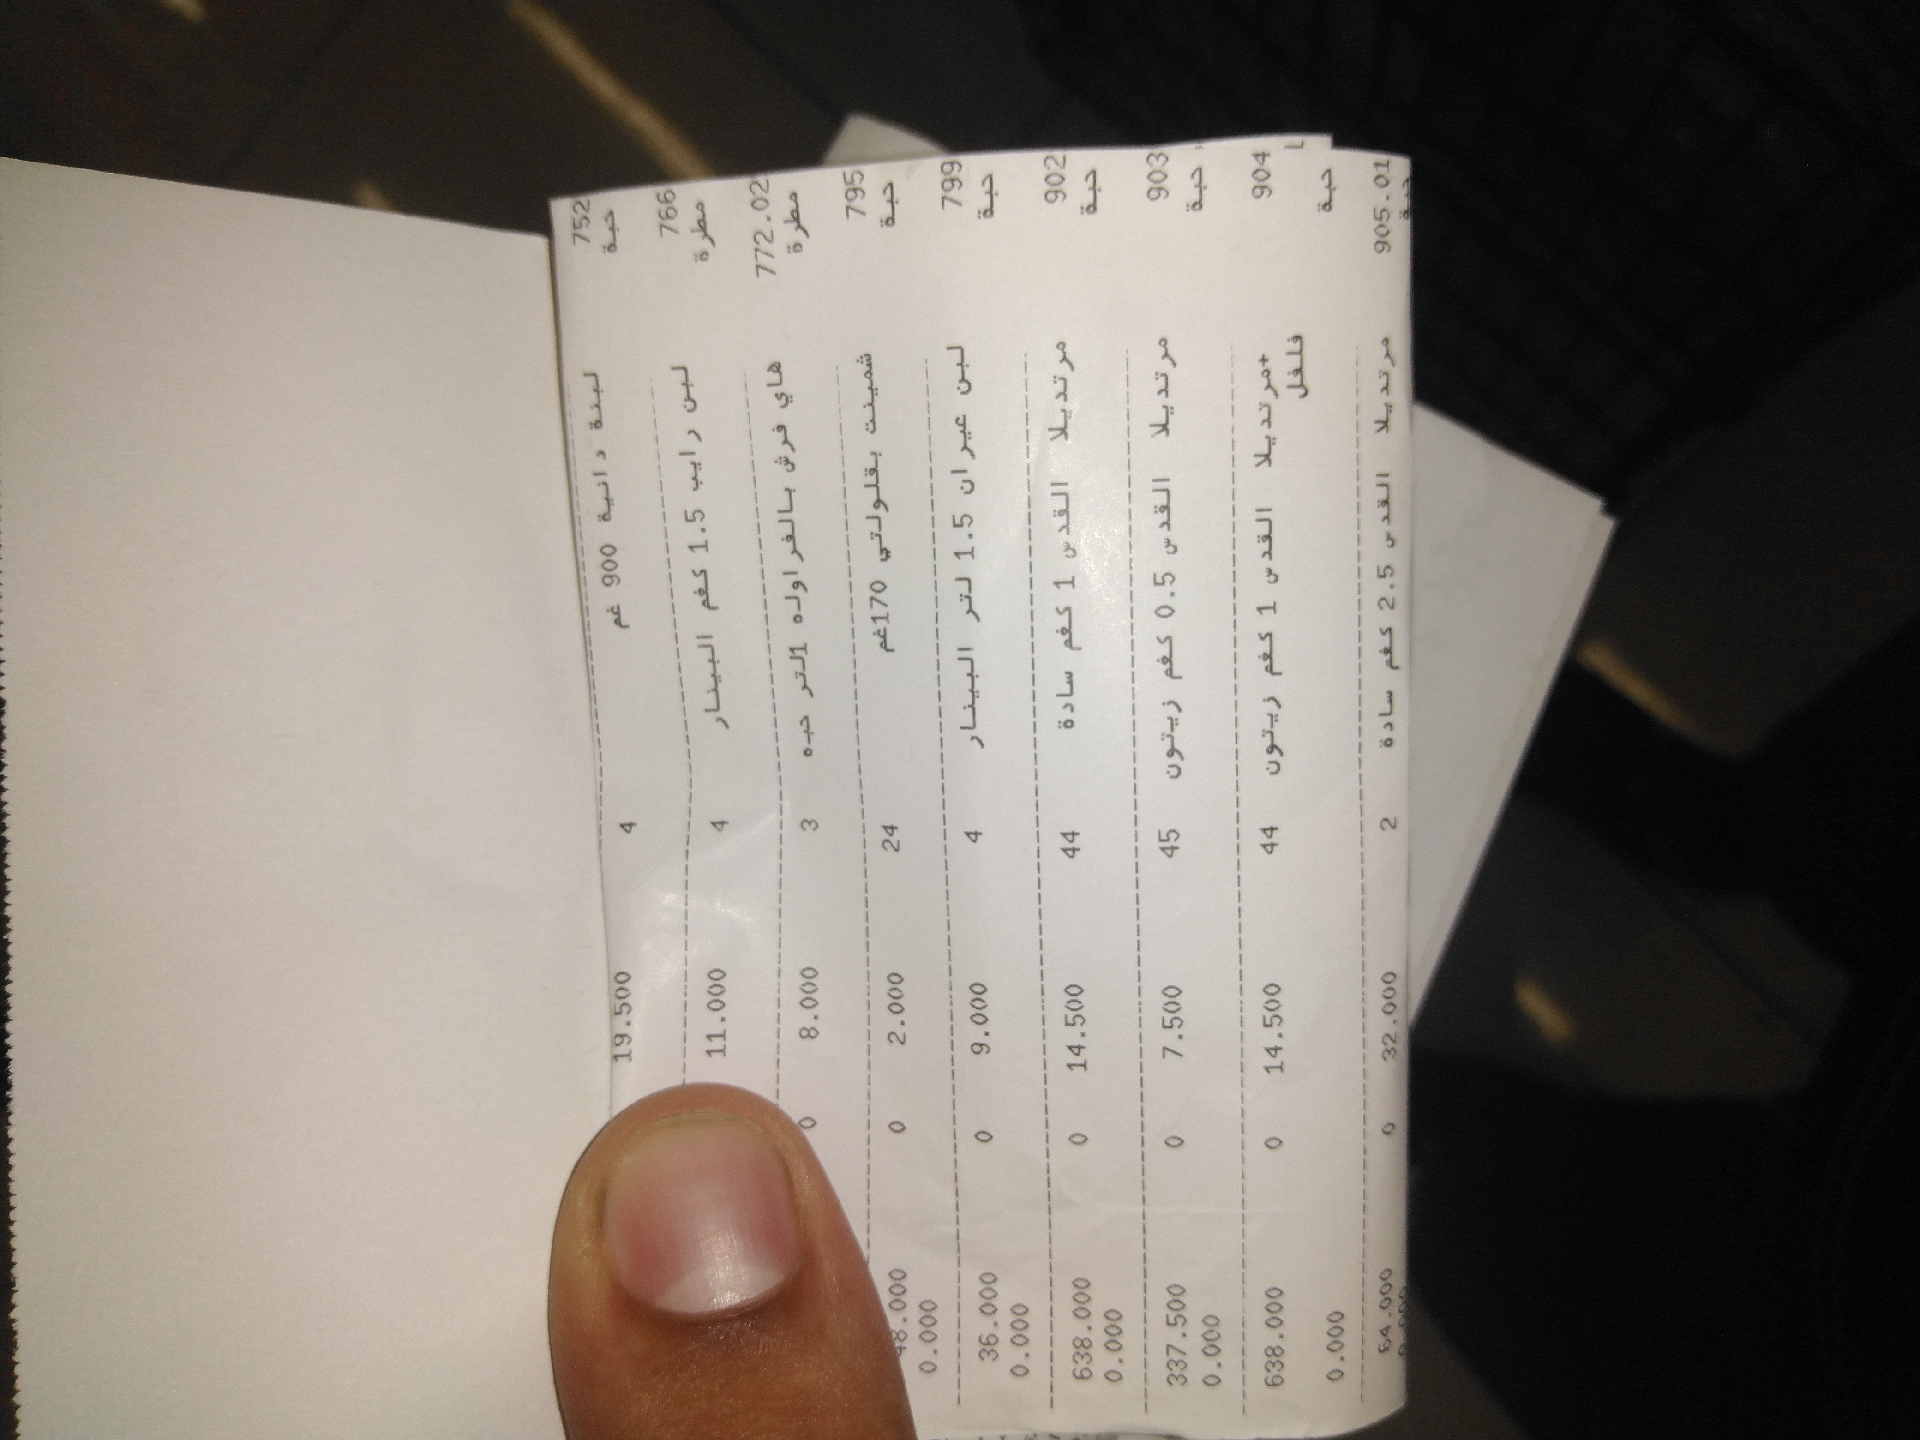 752 لبنة دانية 900 غم 4 19.500
حبة
766 لبن رايب 1.5 كغم البينار 4 11.000
مطرة
772.02 هاي فرش بالفراوله 1لتر حبه 3 8.000 0
مطرة
795 شمينت بقلولتي 170غم 24 2.000 0 48.000
حبة 0.000
799 لبن عيران 1.5 لتر البينار 4 9.000 0 36.000
حبة 0.000
902 مرتديلا القدس 1 كغم سادة 44 14.500 0 638.000
حبة 0.000
903 مرتديلا القدس 0.5 كغم زيتون 45 7.500 0 337.500
حبة 0.000
904 مرتديلا القدس 1 كغم زيتون+ 44 14.500 0 638.000
فلفل
حبة 0.000
905.01 مرتديلا القدس 2.5 كغم سادة 2 32.000 0 64.000
حبة 0.000